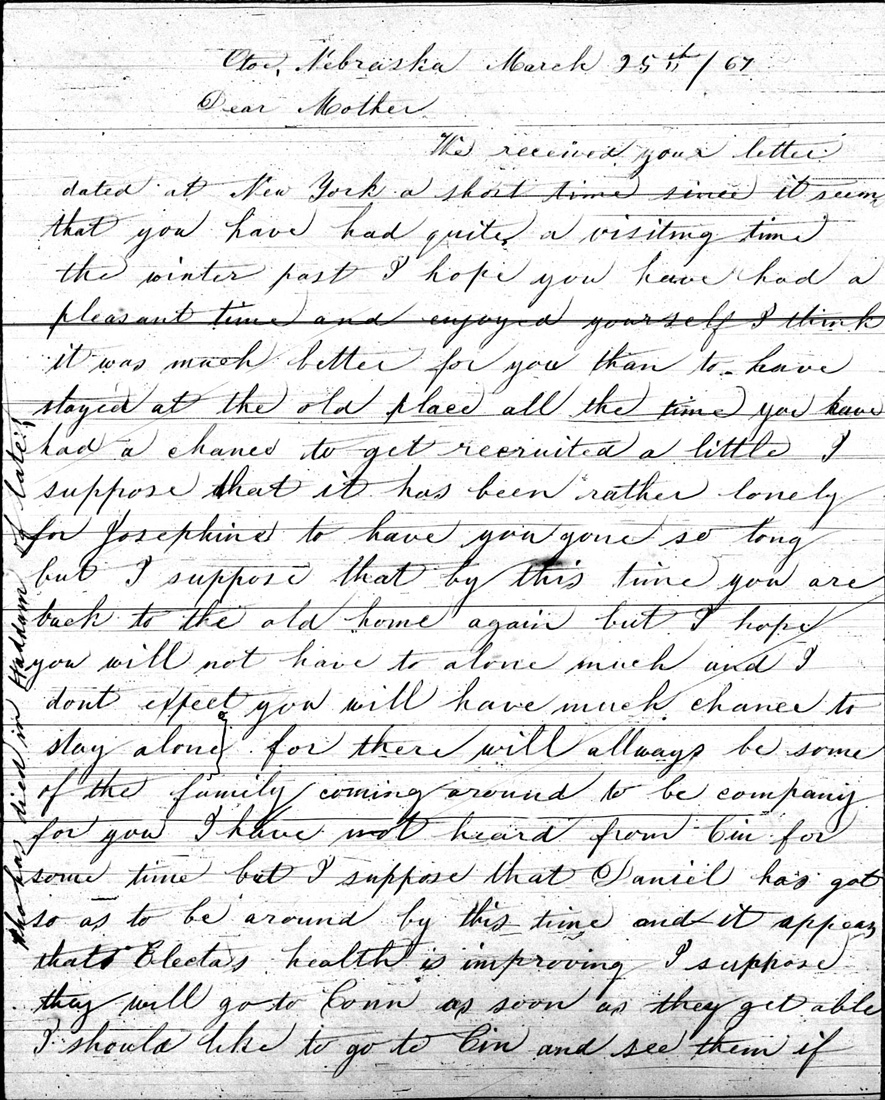 Otoe, Nebraska March 25th / 67
Dear Mother
We received your letter
dated at New York a short time since it seems
that you have had quite a visiting time
the winter past I hope you have had a
pleasant time and enjoyed yourself I think
it was much better for you than to have
stayed at the old place all the time you have
had a chance to get recruited a little I
suppose that it has been rather lonely
for Josephine to have you gone so long
but I suppose that by this time you are
back to the old home again but I hope
you will not have to alone much and I
dont expect you will have much chance to
stay alone for there will allways be some
of the family coming around to be company
for you I have not heard from Cin for
some time but I suppose that Daniel has got
so as to be around by this time and it appears
that Electas health is improving I suppose
they will go to Conn as soon as they get able
I should like to go to Cin and see them if
who has died in Haddam of late?